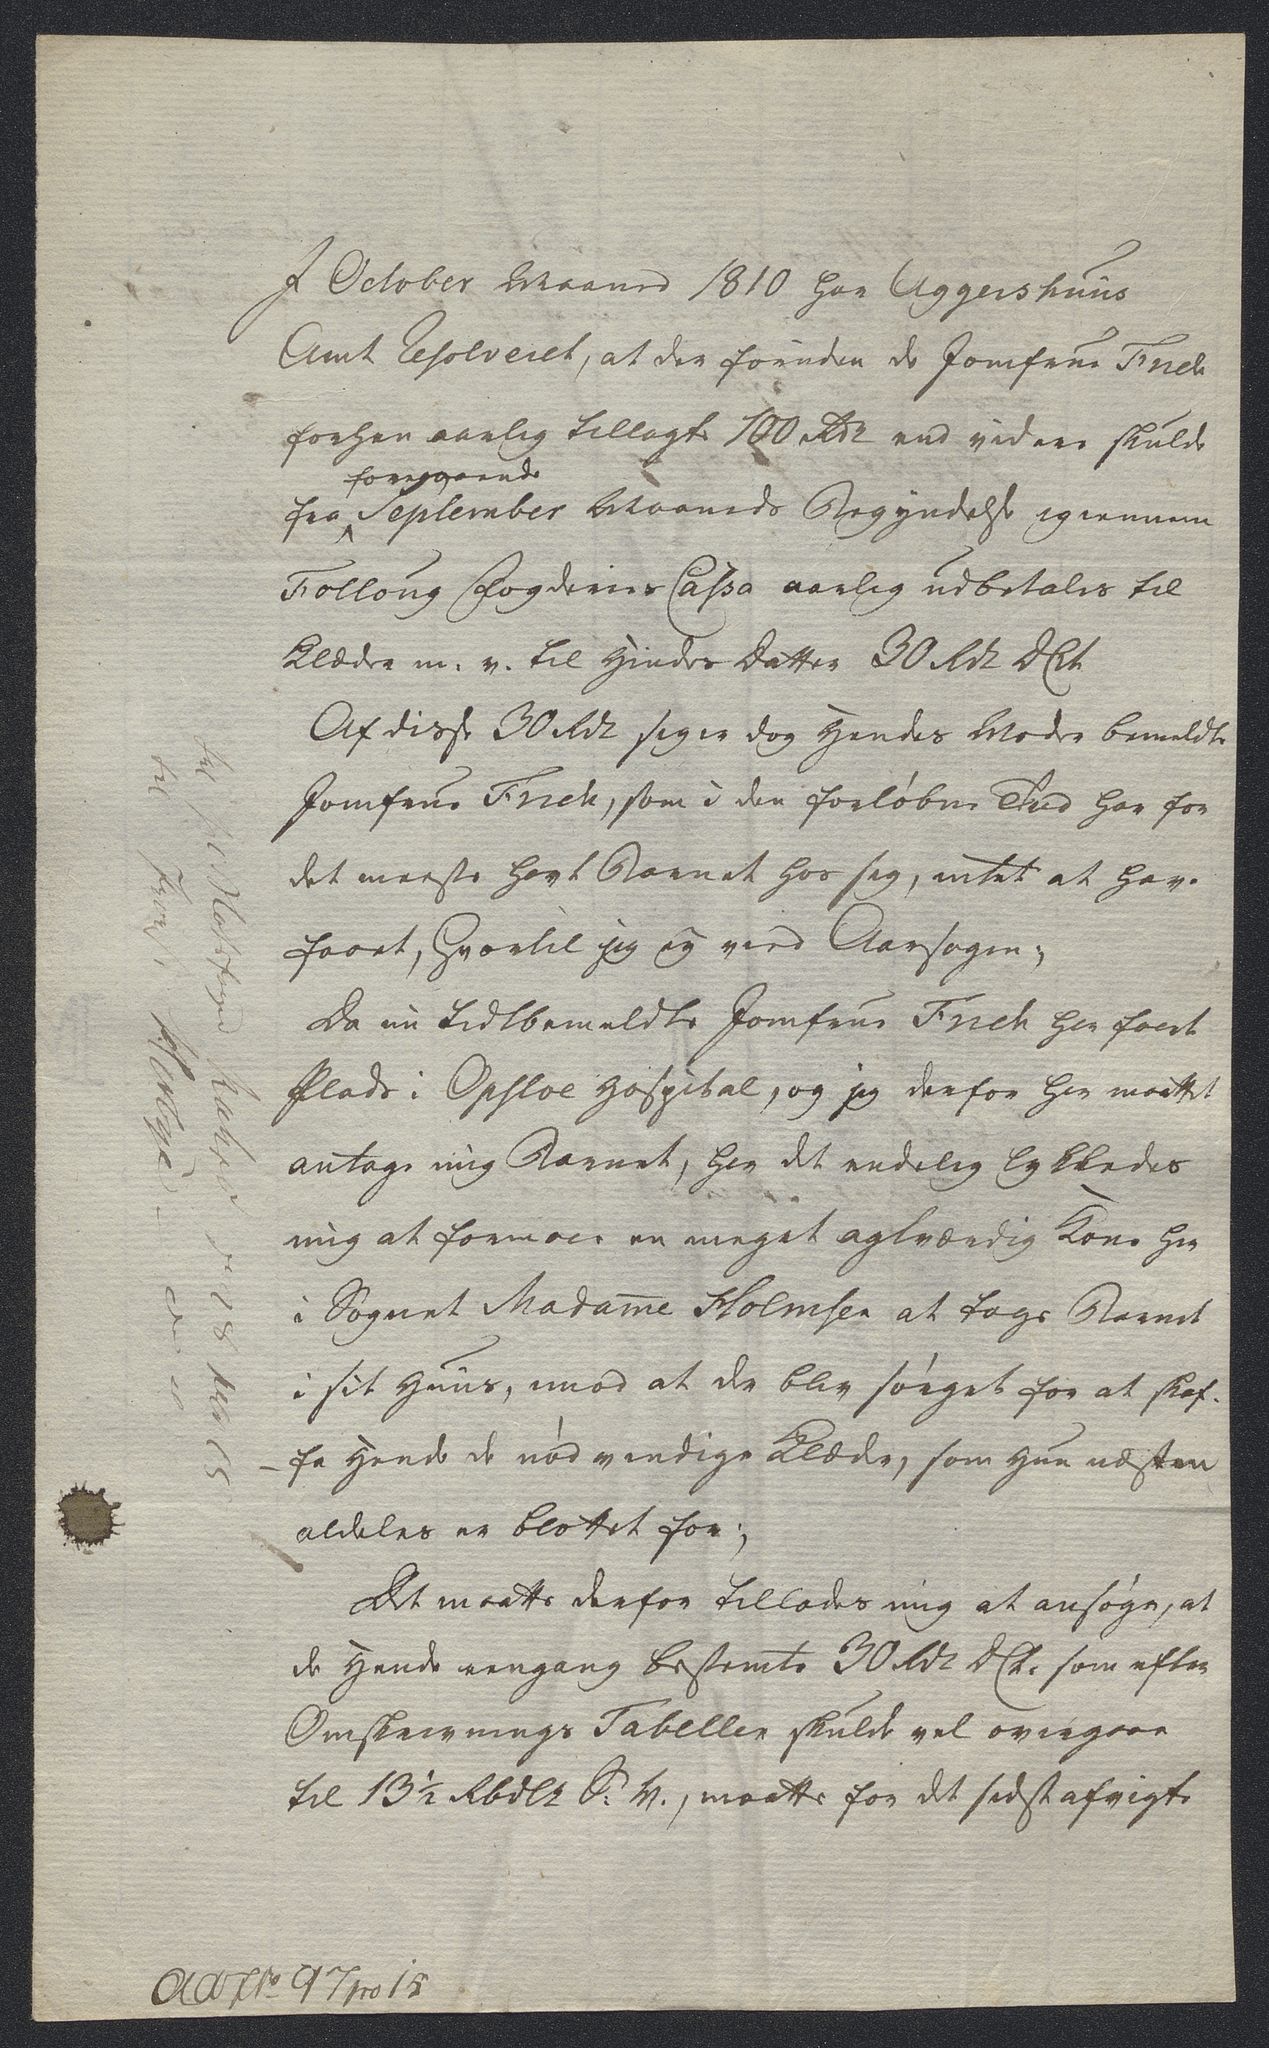 I October Maaned 1810 har Aggershuus
Amt Resolveret, at der foruden de Jomfrue Frich
forhen aarlig tillagte 100 Rdr end videre skulde
foregaaende
fra September Maaneds Begyndelse igiennem
Folloug Fogderies Cassa aarlig udbetales til
Klæder m. v. til Hindes Datter 30 Rdr DCt.
Af disse 30 Rdr siger dog Hendes Moder bemeldte
Jomfrue Frich, som i den forløbne Tid har for
det meeste havt Barnet hos sig, intet at have
faaet, hvortil jeg ej veed Aarsagen;
Da nu tidtbemeldte Jomfrue Frich har faaet
Plads i Opsloe Hospital, og jeg derfor har maattet
antage mig Barnet, har det endelig lykkedes
mig at formaae en meget agtværdig Kone her
i Sognet Madame Holmsen at tage Barnet
i sit Huus, imod at der blev sørget for at skaf-
fe Hende de nødvendige Klæder, som Hun næsten
aldeles er blottet for;
Det maatte derfor tillades mig at ansøge, at
de Hende eengang bestemte 30 Rdr DCt. som efter
Omskrivnings Tabellen skulde vel overgaae
til 13½ Rbdlr S. V., maatte for det sidst afvigte
No 97 pro 15